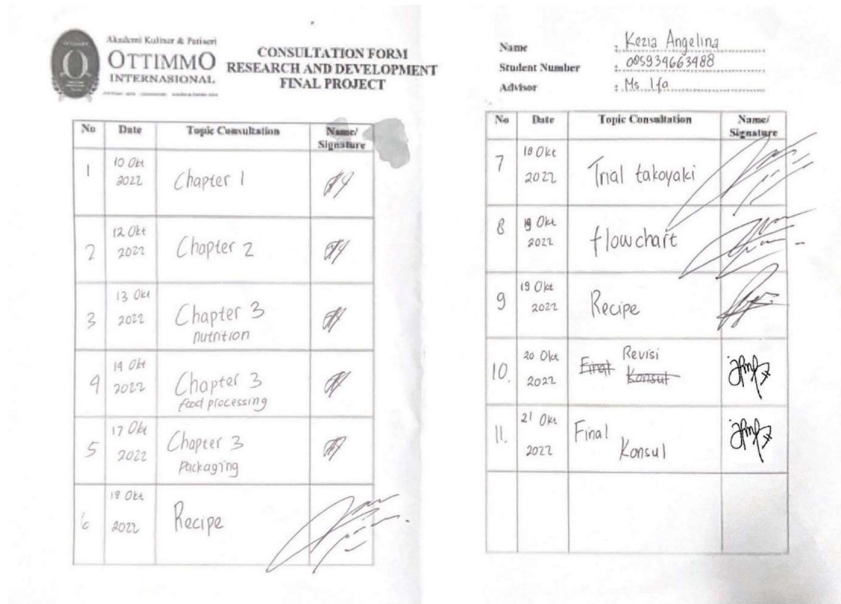 Akademi Kuliner & Patiseri
OTTIMMO
INTERNASIONAL
CONSULTATION FORM
RESEARCH AND DEVELOPMENT
FINAL PROJECT
No Date Topic Consultation Name/
Signature
1 10 Okt
2022 Chapter 1
2 12 Okt
2022 Chapter 2
3 13 Okt
2022 Chapter 3
nutrition
4 14 Okt
2022 Chapter 3
food processing
5 17 Okt
2022 Chapter 3
Packaging
6 18 Okt
2022 Recipe
Name : Kezia Angelina
Student Number : 085934663488
Advisor : Ms. Ifa
No Date Topic Consultation Name/
Signature
7 18 Okt
2022 Trial takoyaki
8 19 Okt
2022 flowchart
9 19 Okt
2022 Recipe
10. 20 Okt
2022 Revisi
Final Konsul
11. 21 Okt
2022 Final
Konsul